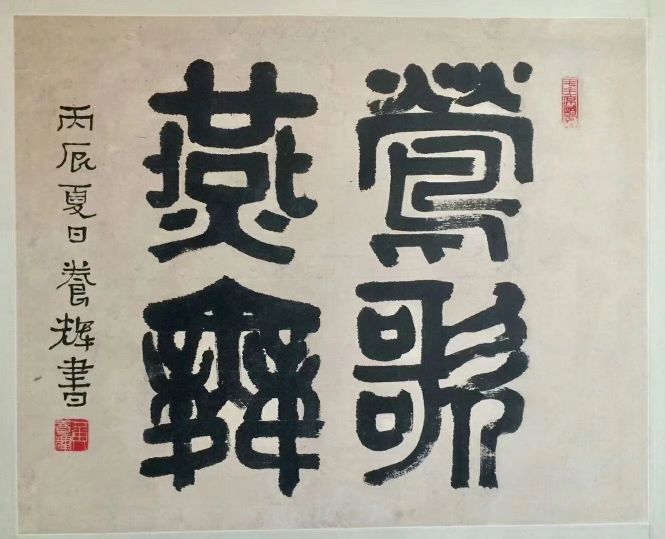 鶯歌
燕舞
丙辰夏日養輝書